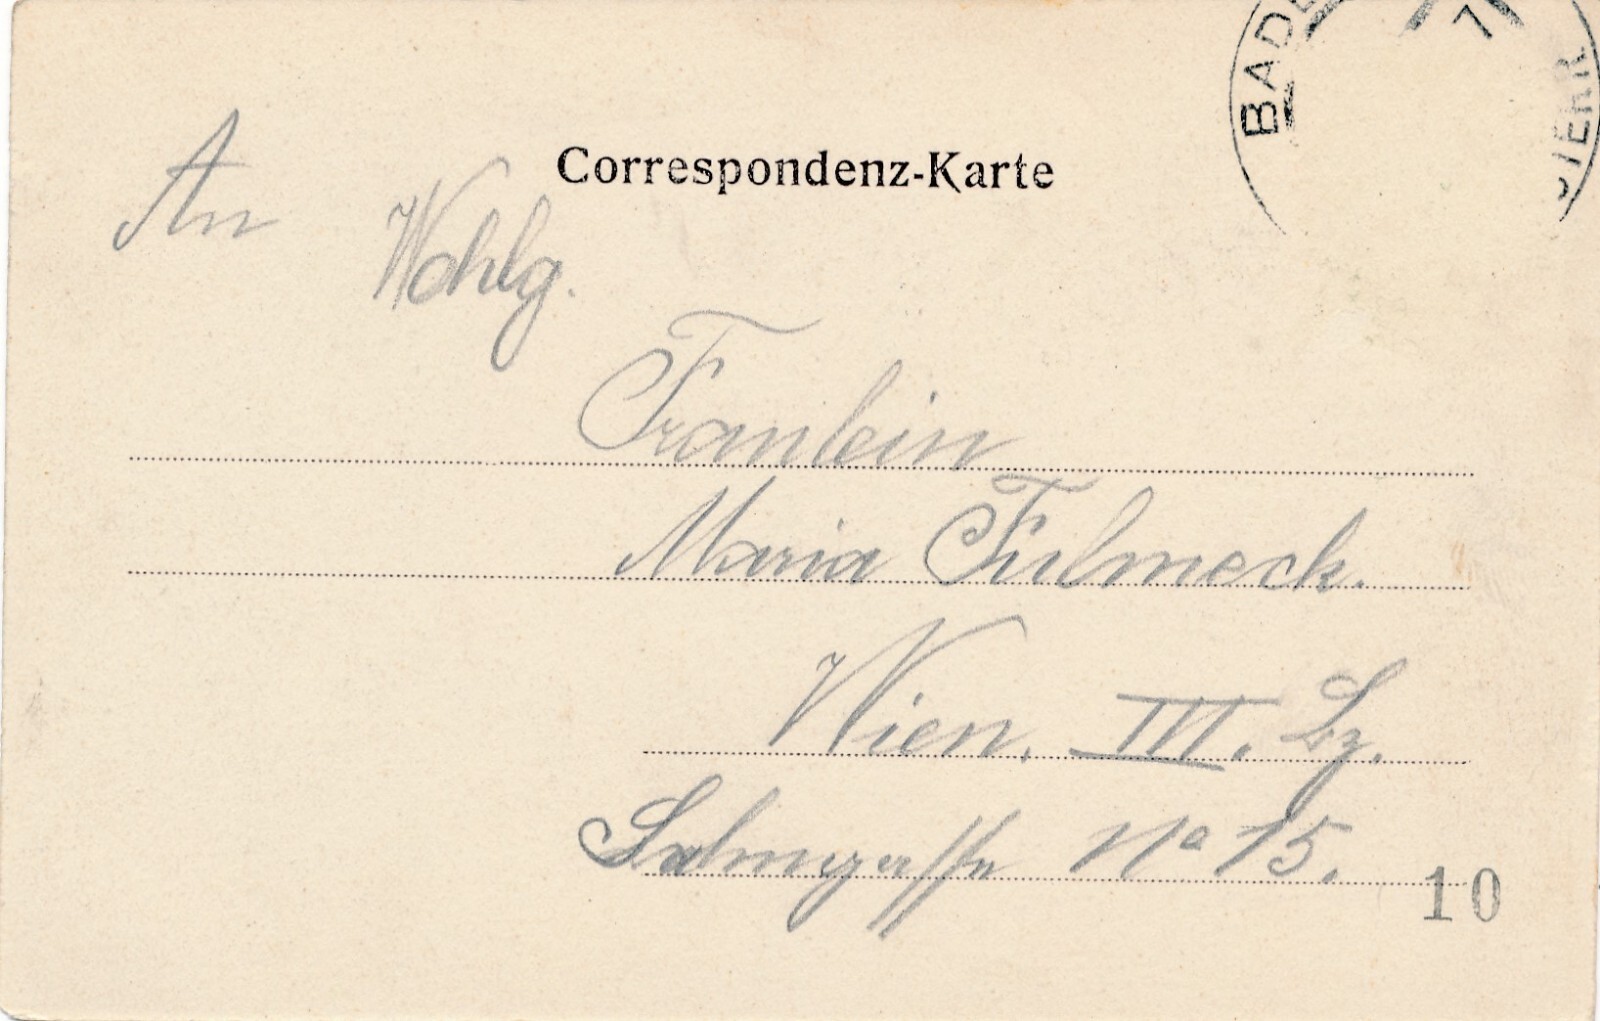 BADE
7
ÖSTERR
Correspondenz-Karte
An
Wohlg.
Fraulein
Maria Fulmeck.
Wien, III. Bz.
Salmgasse No 15.
10